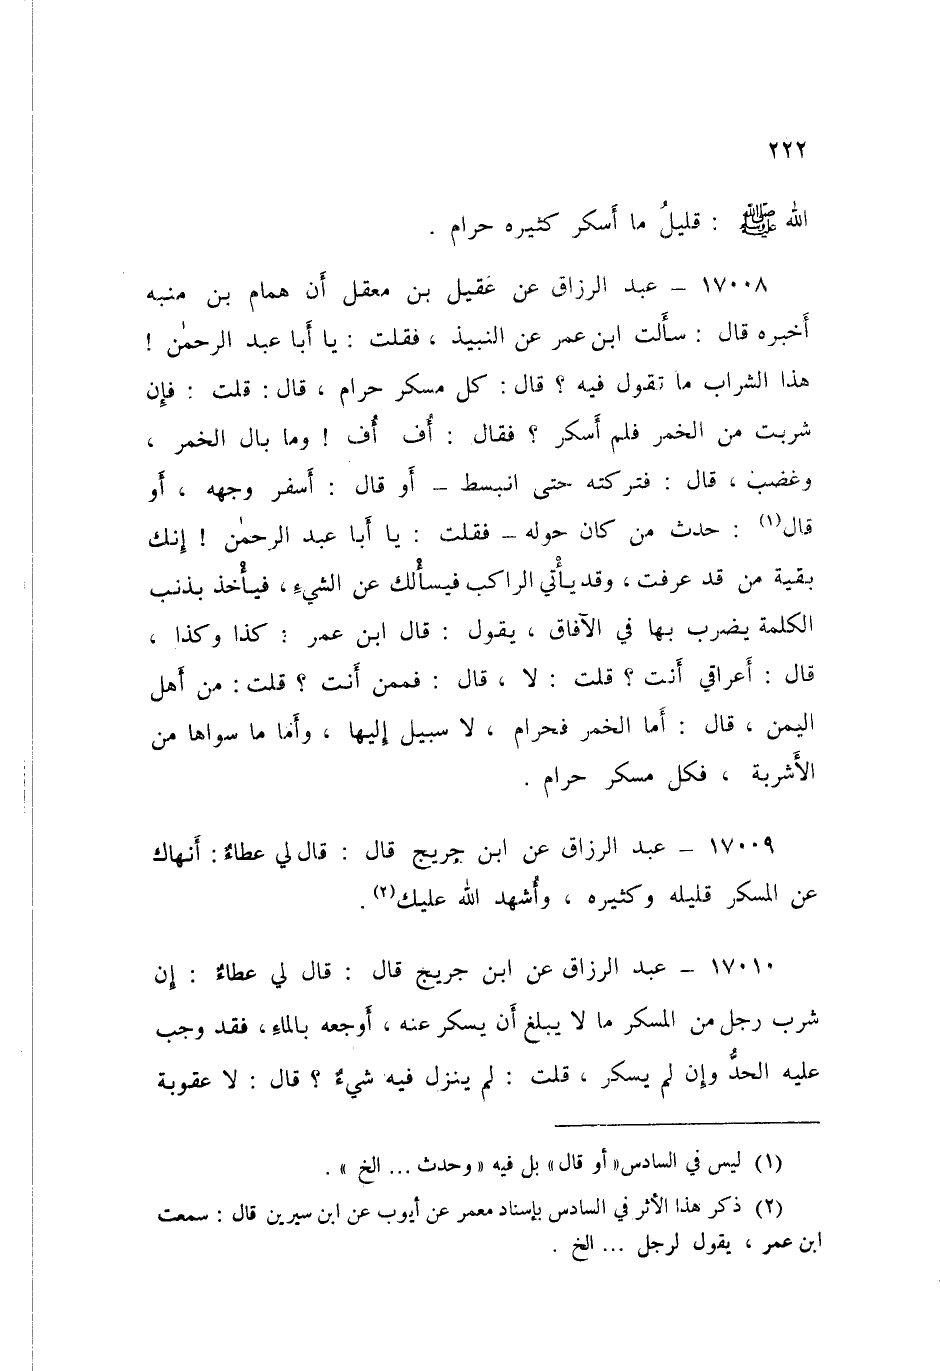 ٢٢٢
الله ﷺ : قليلُ ما أسكر كثيره حرام .
١٧٠٠٨ – عبد الرزاق عن عقيل بن معقل أن همام بن منبه
أخبره قال : سألت ابن عمر عن النبيذ ، فقلت : يا أبا عبد الرحمٰن !
هذا الشراب ما تقول فيه ؟ قال : كل مسكر حرام ، قال : قلت : فإن
شربت من الخمر فلم أسكر ؟ فقال : أُف أُف ! وما بال الخمر ،
وغضب ، قال : فتركته حتى انبسط – أو قال : أسفر وجهه ، أو
قال(١) : حدث من كان حوله – فقلت : يا أبا عبد الرحمٰن ! إنك
بقية من قد عرفت ، وقد يأتي الراكب فيسألك عن الشيء ، فيأخذ بذنب
الكلمة يضرب بها في الآفاق ، يقول : قال ابن عمر : كذا وكذا ،
قال : أعراقي أنت ؟ قلت : لا ، قال : فممن أنت ؟ قلت : من أهل
اليمن ، قال : أما الخمر فحرام ، لا سبيل إليها ، وأما ما سواها من
الأشربة ، فكل مسكر حرام .
١٧٠٠٩ – عبد الرزاق عن ابن جريج قال : قال لي عطاءٌ : أنهاك
عن المسكر قليله وكثيره ، وأُشهد الله عليك(٢) .
١٧٠١٠ – عبد الرزاق عن ابن جريج قال : قال لي عطاءٌ : إن
شرب رجل من المسكر ما لا يبلغ أن يسكر عنه ، أوجعه بالماء ، فقد وجب
عليه الحدُّ وإن لم يسكر ، قلت : لم ينزل فيه شيءٌ ؟ قال : لا عقوبة
(١) ليس في السادس «أو قال» بل فيه « وحدث ... الخ » .
(٢) ذكر هذا الأثر في السادس بإسناد معمر عن أيوب عن ابن سيرين قال : سمعت
ابن عمر ، يقول لرجل ... الخ .